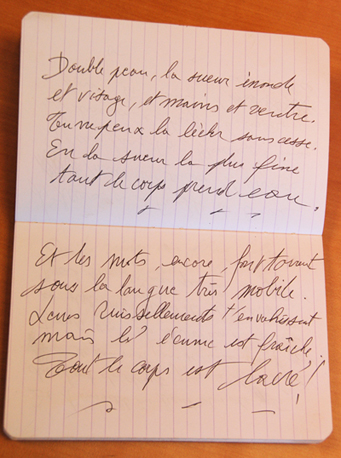 Double peau, la sueur inonde
et visage, et mains et ventre.
Tu ne peux la lécher sans cesse.
En la sueur la plus fine
tout le corps prend eau.
Et les mots, encore, font torrent
sous la langue très mobile.
Leurs ruissellements t'envahissent
mais l'écume est fraîche.
Tout le corps est lacté!